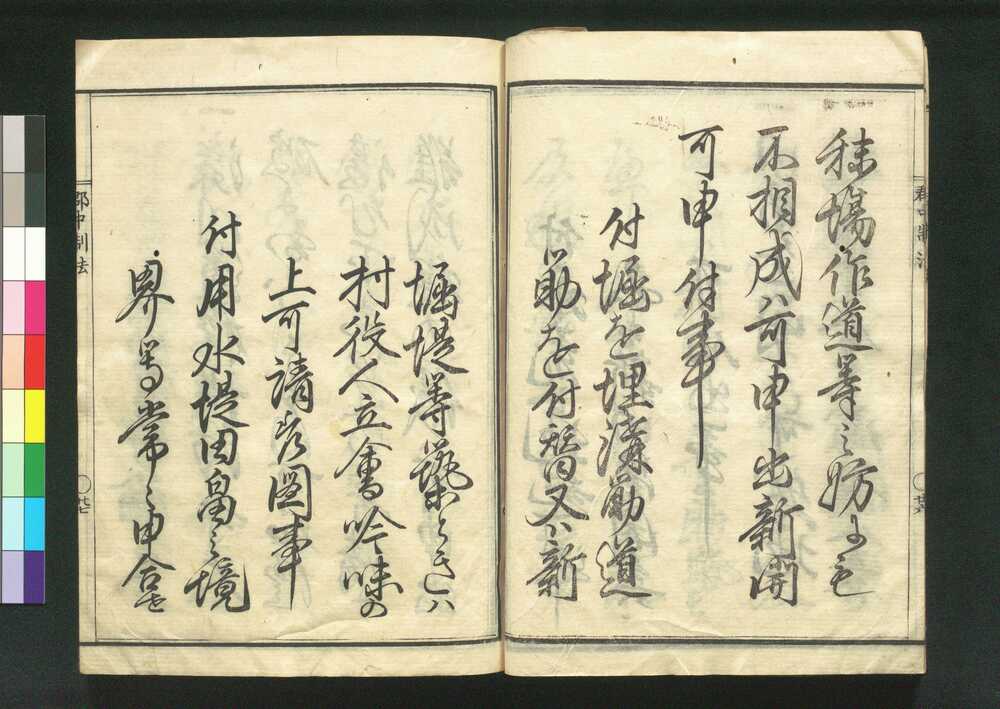 郡中制法
廿六
秣場作道等之妨ニも
不相成ハ可申出新開
可申付事
付堀を埋溝筋道
筋を付替又ハ新
堀堤等築ときハ
村役人立會吟味の
上可請差図事
付用水堤田畠之境
界等常々申合せ
郡中制法
廿七